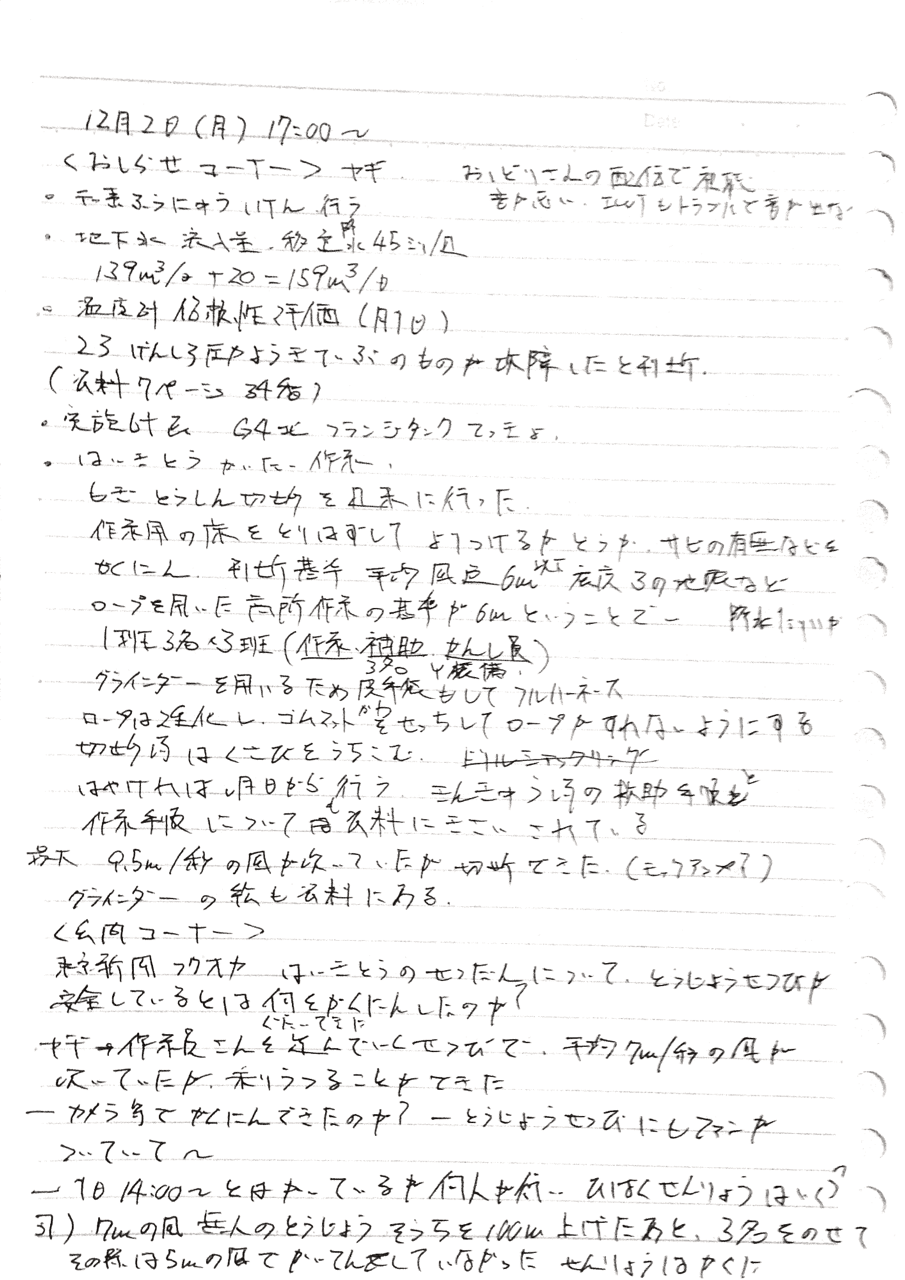 12月2日(月) 17:00〜
<おしらせコーナー> ヤギ おしどりさんの配信で視聴
音が悪い. IWJもトラブルで音が出ない
・ 窒素ふうにゅう いけん 行う
・ 地下水 流入量. 移送 45ミリ/日
139m³/日 + 20 = 159m³/日
・ 温度計 信頼性評価 (月1日)
23 げんしろ圧力ようきていぶのものが故障したと判断.
(資料7ページ 34番)
・ 実施計画 G4北 フランジタンク てっきょ.
・ はいきとう かいたい作業.
もぎ とうしん切断を 行った
作業用の床をとりはずして よりつけるかどうか. サビの有無などを
かくにん. 判断基準 平均風速6m以下 震度3の地震など
ロープを用いた高所作業の基準が6mということで−
1班3名×3班 (作業、補助、かんし員)
3名 装備
グラインダーを用いるため 皮手袋 もして フルハーネス
ロープは2重化し、ゴムマットをせっちして ロープがすれないようにする
切断時はくさびをうちこむ.
はやければ 明日から行う. きんきゅう時の救助手順と
作業手順については資料にきさいされている
最大 9.5m/秒の風が吹いていたが 切断できた. (モックアップ?)
グライインダーの絵も資料にある.
<質問コーナー>
東京新聞 フクオカ はいきとうのせつだんについて. とうじょうせつびが
安全しているとは 何をかくにんしたのか?
ぐたいてきに
ヤギ→作業員さんを運んでいくせつびで. 平均7m/秒の風が
吹いていたが. 乗りうつることができた
― カメラ等でかくにんできたのか? ― とうじょうせつびにもファンが
ついていて〜
― 1日 14:00〜とはかっているが 何人が行 ひばくせんりょうはいくつ?
ヨリ) 7mの風 無人のとうじょうそうちを100m上げたあと、3名をのせて
その際は5mの風でかいてんをしていなかった せんりょうはかくに